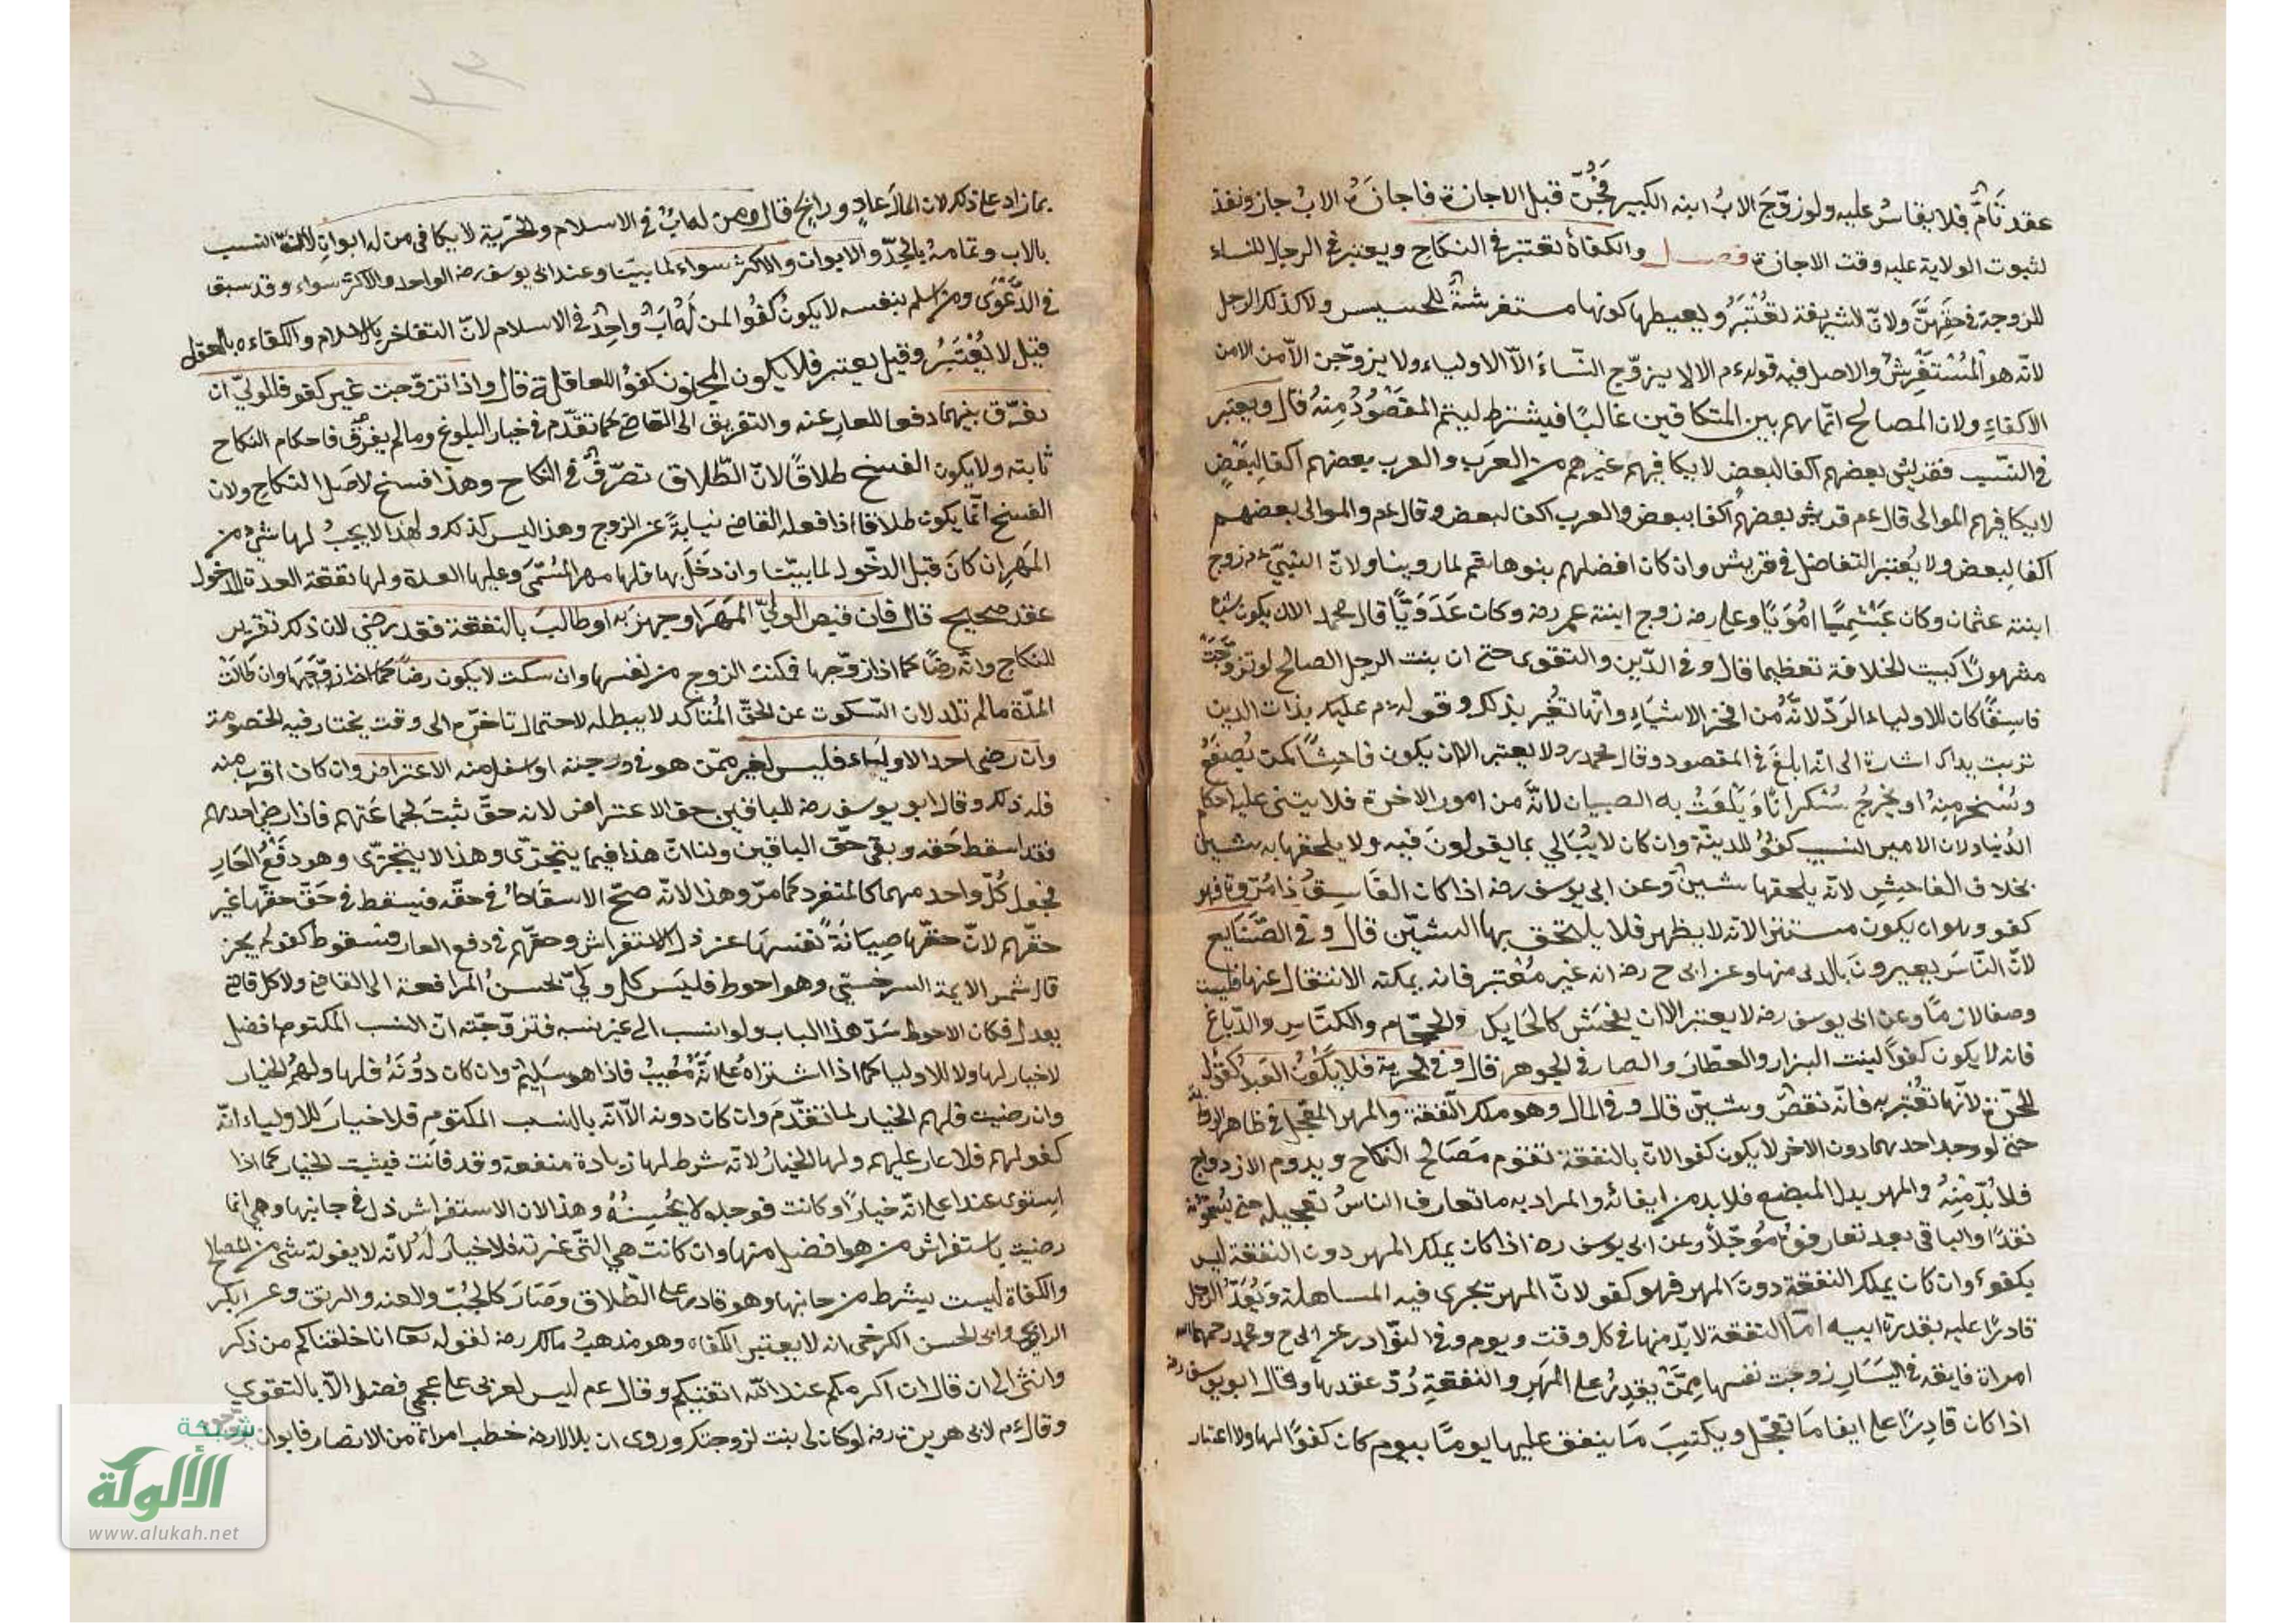 عقد تَامٌّ فلا يقاسُ عليه ولو زوّجَ الابُ ابنه الكبير فَجُنَّ قبل الاجازة فاجازَهُ الابُ جاز ونفذ
لثبوت الولاية عليه وقت الاجازة فصل والكفاءةُ تعتبر في النكاح ويعتبر في الرجال للنساء
للزوجة في حقّهنّ ولانّ الشريفة تُعْتَبَرُ ويعيطها كونها مستفرشةً للخسيس ولا كذلك الرجل
لانّه هو الْمُسْتَفْرِشُ والاصل فيه قوله ءم الا لا يزوّج النّساءَ الّا الاولياء ولا يزوّجن الّا من الامن
الاكفاءِ ولان المصالح انّما تهم بين المتكافين غالبًا فيشترط ليتم المقصُودُ مِنهُ قال ويعتبر
في النّسب فقريش بعضهم اكفا لبعض لا يكافيهم غيرهم من العَرَب والعرب بعضهم اكفا لِبَعْضٍ
لا يكافيهم الموالى قال عم قريش بعضهم اكفا ببعض والعرب اكفا لبعض وقال عم والموالى بعضهم
اكفا لبعض ولا يُعتبر التفاضل في قريش وان كان افضلهم بنوها شم لما روينا ولانّ النبيّ ءم زوج
ابنته عثمان وكان عَبْشَمِيًّا امُوَيًّا وعلى رضه زوج ابنته عمر رضه وكان عَدَوِيًّا قال محمد الا ان يكون شيًا
مشهورًا كبيت الخلافة تعظيما قال وفى الدّين والتقوى حتى ان بنت الرجل الصالح لو تزوّجَتْ
فاسِقًا كان للاولياء الرَدّ لانّهُ من افخر الاشياءِ وانّها تُعَيَّر بذلك وقوله ءم عليك بذات الدين
تربت يداك اشارة الى انّه ابلغَ في المقصود وقال محمد ره لا يعتبر الا ان يكون فاحِشًا كمن يُصْفَعُ
ويُسْخر مِنهُ او يَخرُجُ سُكرانًا وَيَلْعَبُ به الصبيان لانَّهُ من امور الاخرة فلا يبتنى عليه احكام
الدّنيا ولان الامير النسيب كفوٌ للدينّة وان كان لا يُبَالي بما يقولون فيه ولا يلحقها به شين
بخلاف الفاحِشِ لانّه يلحقها شينٌ وعن ابى يوسف رضه اذا كان الفَاسِقُ ذا مُرُوّة فهو
كفو وهو ان يكون مستترا لانه لا يظهر فلا يلتحق بها الشيّن قال وفى الصّنَايع
لانّ النّاسَ يعيرونَ بالدنى منها وعن ابى ح رضه انه غير مُعْتبر فانه يمكنه الانتقال عنها فليست
وصفا لازمًا وعن ابى يوسف رضه لا يعتبر الا ان يفحَش كالحَايك والحجّام والكنّاس والدّباغ
فانه لا يكون كفوًا لبنت البزار والعطّار والصارفى الجوهر قال وفى الحرية فلا يكُونُ العَبدُ كفوًا
للحرّة لانّها تُعْتبر به فانّه نقصٌ وشيّن قال وفى المال وهو ملك النّفقة والمهر المعجّل في ظاهر الرواية
حتى لو وجد احدهما دون الاخر لا يكون كفوا لانّ بالنفقة تقوم مَصَالح النكاح ويدوم الازدواج
فلا بُدّ مِنهُ والمهر بدل المبضع فلا بد من ايفائه والمراد به ما تعارف الناسُ تعجيله حتى يُسَمّونه
نقدًا والباقى بعد تعارفوهُ مُؤجّلاً وعن ابى يوسف رضه اذا كان يملك المهر دون النفقة ليس
بكفوء وان كان يملك النفقة دونَ المهر فهو كفو لانّ المهر تجرى فيه المساهلة وَيُعَدّ الرجل
قادرًا عليه بقدرة ابيه امّا النفقة لا بدّ منها في كل وقت ويوم وفى النوّادر عن ابى ح ومحمد رحمهما الله
امراة فايقة في اليَسَارِ زوّجت نفسها مِمّن يقدِرُ على المهَرِ والنفقةِ رُدّ عقدها وقال ابو يوسف رضه
اذا كان قادِرًا على ايفا مَا تعجّل ويكتسِبَ مَا ينفق عليها يومًا بيوم كان كفوًا لها ولا اعتبار
بما زاد على ذلك لان المالَ غادٍ ورايح قال ومن له ابٌ في الاسلام والحرّية لا يكافى من له ابوان لانّ النسب
بالاب وتمامهُ بالجدّ والابوان والاكثر سواء لما بينّا وعند ابى يوسف رضه الواحد والاكثر سواء وقد سبق
في الدّعْوَى ومن اسلم بنفسه لا يكونُ كُفُوا لمن لَهُ ابٌ واحِدٌ في الاسلام لانّ التفاخر بالاسلام والكفاءه بالعقل
قيل لا يُعْتَبَرُ وقيل يعتبر فلا يكون المجنون كفوًا للعاقلة قال واذا تزوّجت غير كفو فللولىّ ان
يفرّق بينهما دفعا للعار عنه والتفريق الى القاضى كما تقدّم في خيار البلوغ وما لم يفرّق فاحكام النكاح
ثابته ولا يكون الفسخ طلاقًا لانّ الطّلاق تصرّفٌ في النكاح وهذا فسخ لاصَل النكاح ولان
الفسخ انّما يكون طلاقا اذا فعله القاضى نيابةً عن الزوج وهذا ليس كذلك ولهذا لا يجبُ لها شىء من
المَهرِ ان كانَ قبل الدخّول لما بينّا وان دَخَلَ بها فلها مهر المُسَمّى وعليها العدة ولها نفقة العدة للدخول
عقد صحيح قال فان قبض الولىّ المَهَرَ او جهز به او طالبَ بالنفقة فقد رضى لان ذلك تقرير
للنكاح وانّه رضًا كما اذا زوّجها فمكنت الزوج من نفسها وان سكت لا يكون رضًا كما اذا زوّجَهَا وان طَالَتْ
المدّة ما لم تلد لان السّكوت عن الحقّ المُتأكد لا يبطله لاحتمال تاخّره الى وقت يختار فيه الخصومة
وان رضى احد الاوليَاء فليس لغيره ممّن هو في درجته او اسفل منه الاعتراض وان كان اقرب منه
فله ذلك وقال ابو يوسف رضه للباقين حق الاعتراض لانه حقّ ثبتَ لجماعَتهم فاذا رضى احدهم
فقد اسقط حَقه وبقى حّق الباقين ولنا انّ هذا فيما يتجزّى وهذا لا يتجزّى وهو دَفْعُ العَار
فجعل كُلّ واحد منهما كالمنفرد كما مرّ وهذا لانّه صحّ الاسقَاطُ في حقّه فيسقط في حَقّ حقّها غير
حقّهم لانّ حقّها صِيَانَةُ نفسهَا عن ذل الاستفراش وحقّهم في دفع العار فسقوط كفو لم يجز
قال شمس الايمة السرخسيّ وهو احوط فليَس كل ولىّ يحسنُ المرافعة الى القاضى ولا كل قاض
يعدل فكان الاحوط سَدّ هذا الباب ولو انتسب الى غير نسبه فتزوّجته انّ النسب المكتوم افضل
لا خيار لها ولا للاوليا كما اذا اشتراه عَلى انّهُ مُعْيبٌ فاذا هو سَليمٌ وان كان دُونَهُ فلها ولهُم الخيار
وان رضيت فلهم الخيار لما تقدّمَ وان كان دونه الّا انّه بالنسب المكتومِ فلا خيارَ للاولياء انّه
كفو لهم فلا عار عليهم ولها الخيارُ لانّه شرط لها زيادة منفعة وقد فاتت فيثبت الخيار كما اذا
استوى عندا على انّه خيارًا وكانت فوجده لا يحُسِنُهُ وهذا لان الاستفراش ذل في جانبها وهى انما
رضيت باستفراش من هو افضل منها وان كانت هي التّى غرّته فلا خيار لَهُ لانّه لا يفوته شىٌ من المصالح
والكفاة ليست بشرط من جانبها وهو قادر على الطّلاق وصَارَ كالجُبّ والعنه والرتق وعن ابى بكر
الرازى وابى الحسن الكرخى انه لا يعتبر الكفاه وهو مذهبُ مالك رضه لقوله تعا انا خلقناكم من ذكر
وانثى الى ان قال ان اكرمكم عند الله اتقيكم وقال عم ليس لعربى على عجمى فضل الّا بالتقوى
وقال ءم لابى هريرة رضه لو كان لى بنت لزوجتكَ وروى ان بلالا رضه خطب امراة من الانصار فابوا ان
شبكة
الألوكة
www.alukah.net